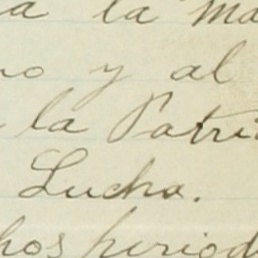 a la Ma
no y al
la Patri
Lucha.
hos period